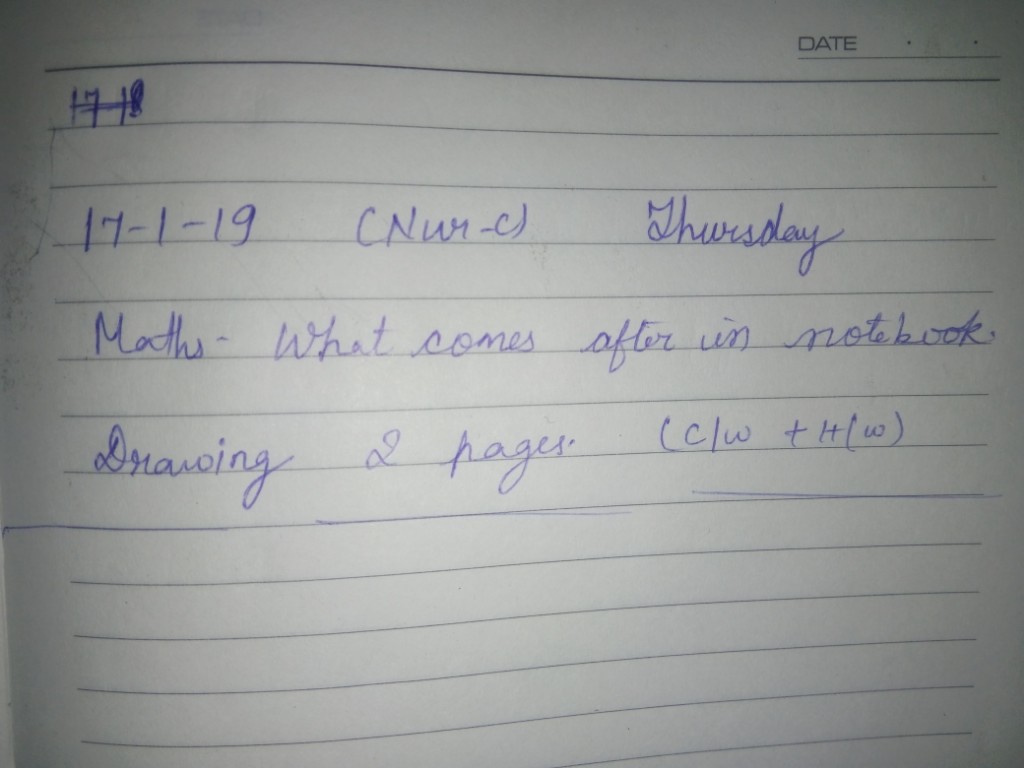 DATE
17-18
17-1-19 (Nur-C) Thursday
Maths- What comes after in notebook.
Drawing 2 pages. (C/w + H/w)